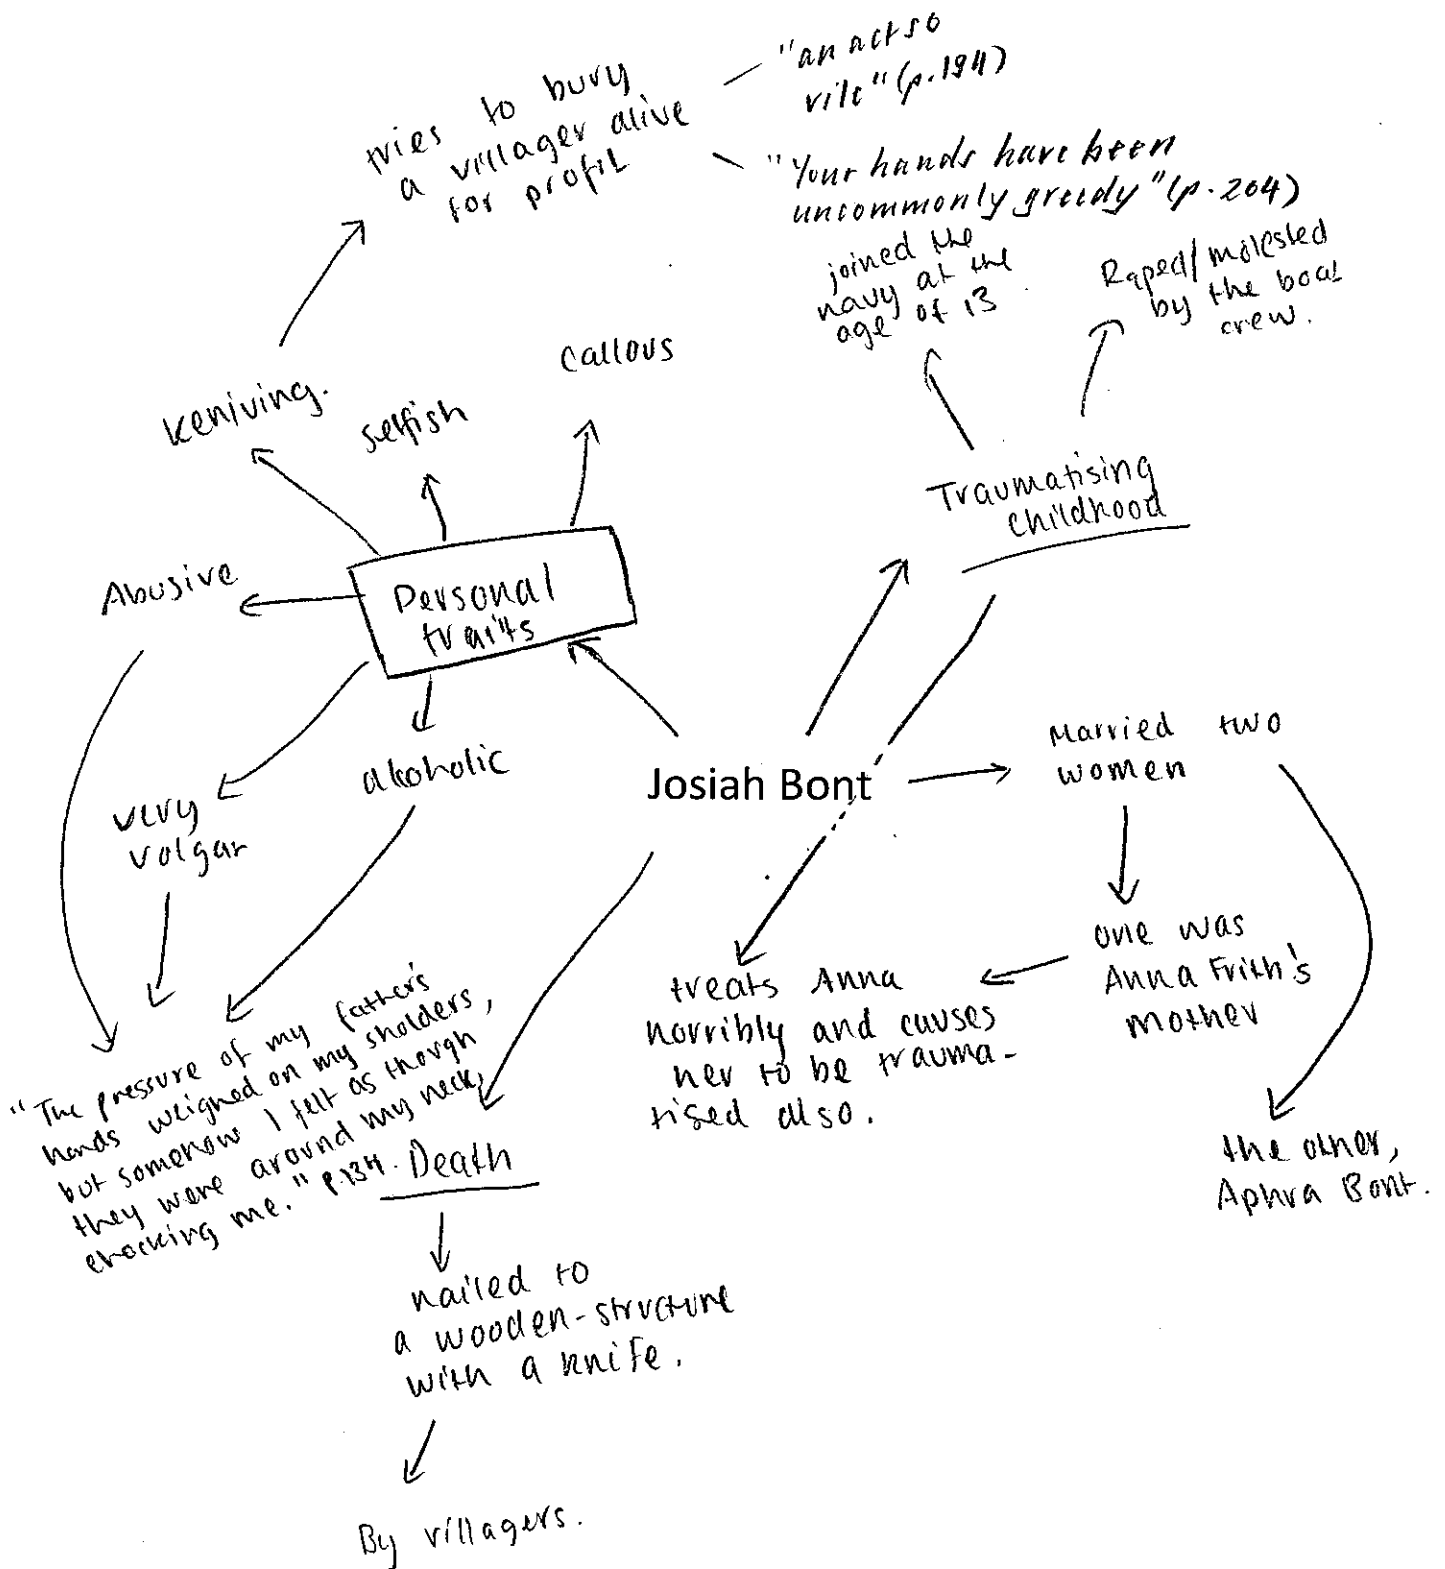 tries to bury
a villager alive
for profit
"an act so
vile" (p.194)
"Your hands have been
uncommonly greedy" (p.204)
joined the
navy at the
age of 13
Raped/molested
by the boat
crew.
Callous
keniving.
selfish
Traumatising
childhood
Abusive
Personal
traits
Married two
women
Josiah Bont
alcoholic
very
volgar
one was
Anna Frith's
mother
treats Anna
horribly and causes
her to be trauma-
tised also.
"The pressure of my father's
hands weighed on my sholders,
but somehow I felt as though
they were around my neck,
chocking me." p.134.
Death
the other,
Aphra Bont.
nailed to
a wooden-structure
with a knife.
By villagers.